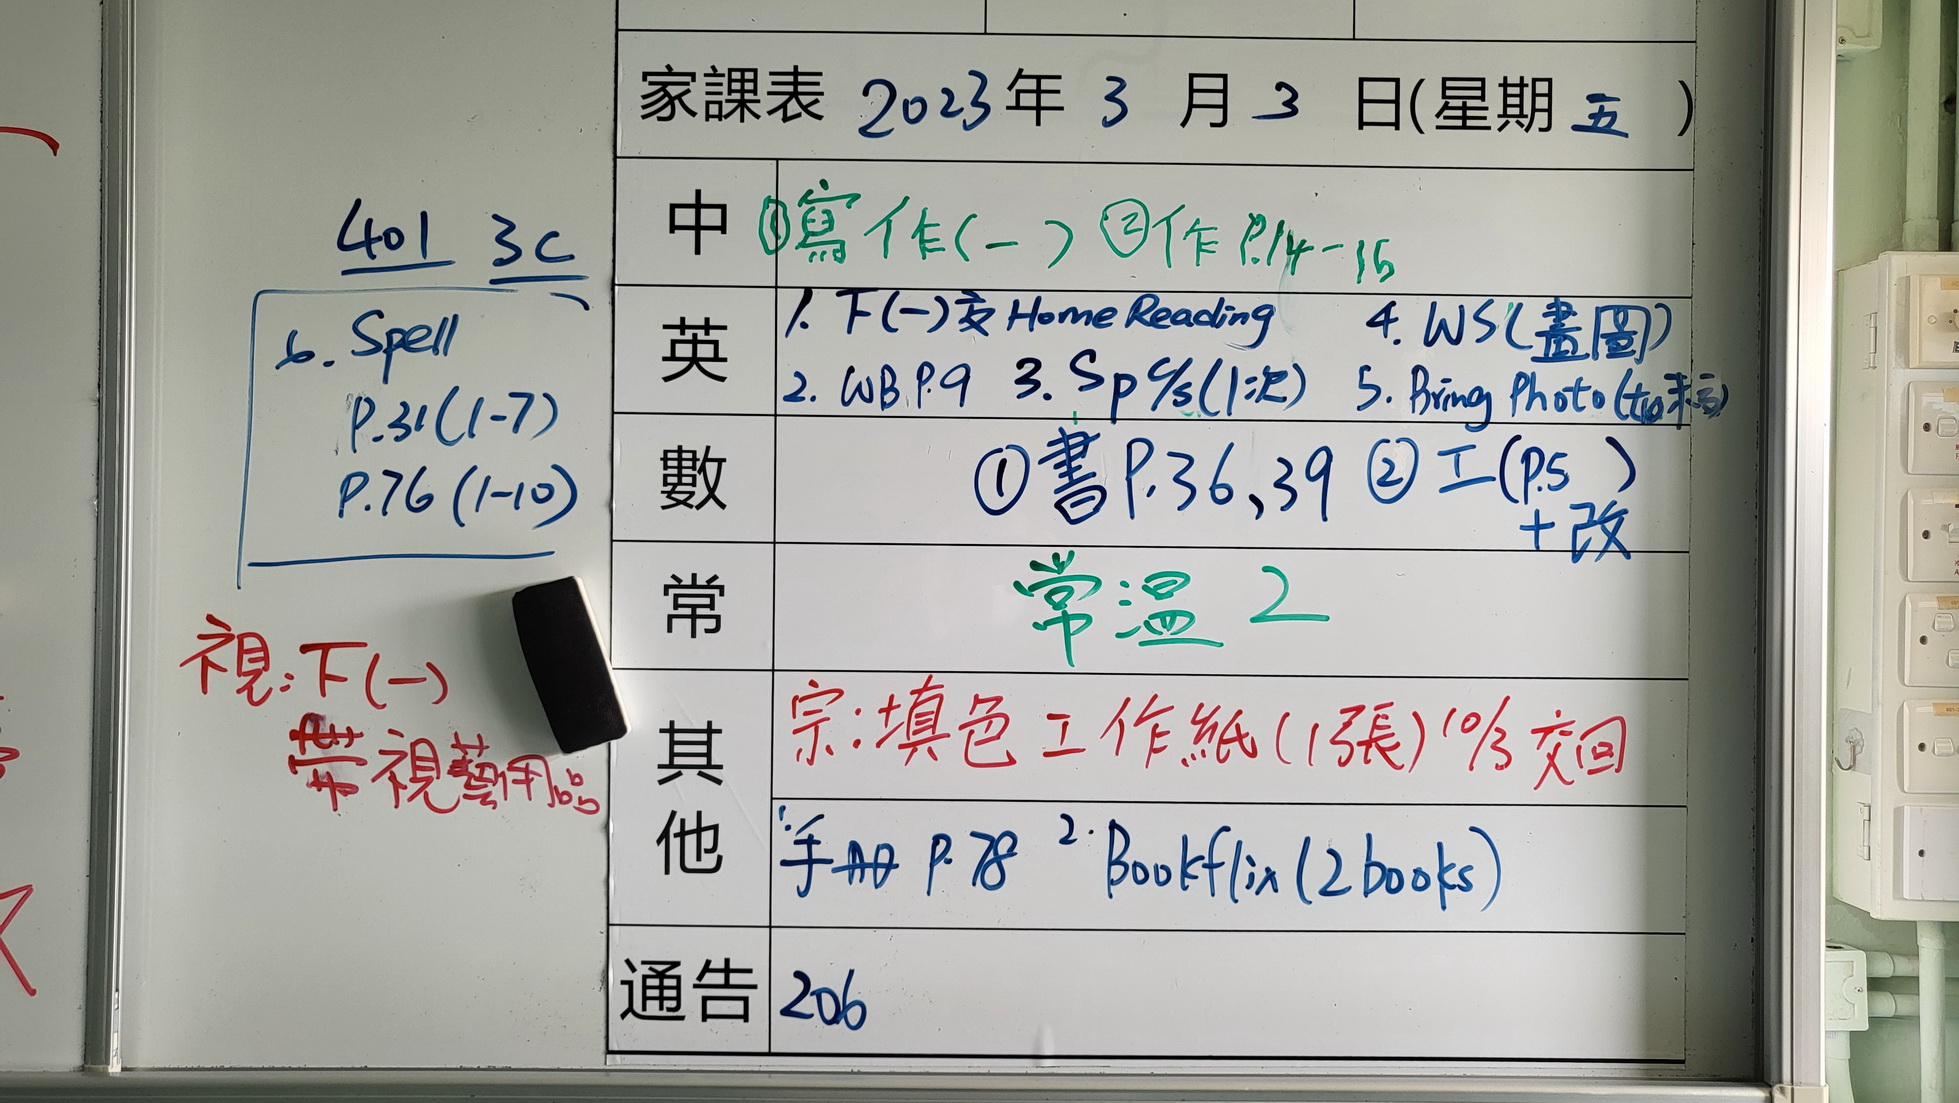 家課表 2023年 3 月 3 日(星期 五 )
401 3C
中 ①寫作(一) ②作 P.14-15
英 1. 下(一)交 Home Reading 4. WS(畫圖)
2. WB P.9 3. Sp c/s(1次) 5. Bring Photo
6. Spell
P.31(1-7)
P.76(1-10)
數 ①書P.36,39 ②工(P.5 )
+改
常 常温2
視:下(一)
帶視藝用品
其他 宗:填色工作紙(1張)10/3交回
1. 手冊 P.78 2. Bookflix(2books)
通告 206